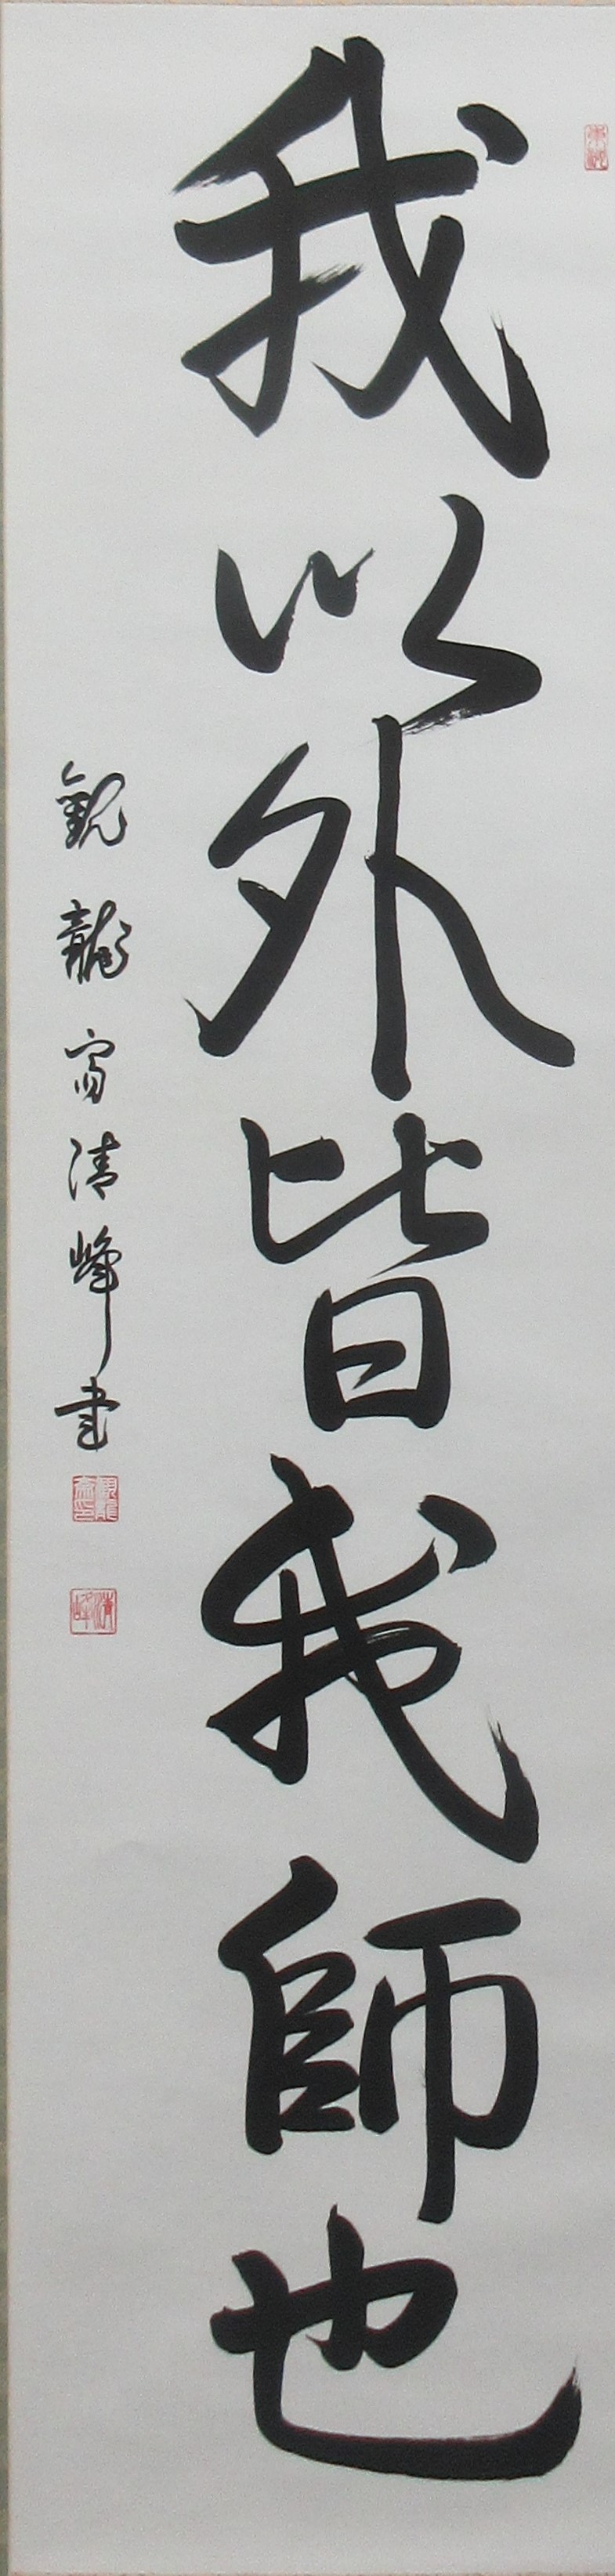 我以外皆我師也
観龍斎清峰書